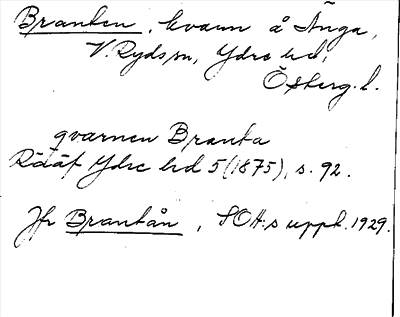 Branken, kvarn å Änga,
V. Ryds sn, Ydre hd,
Österg. l.
qvarnen Branka
Rääf Ydre hd 5 (1875), s. 92.
Jfr Brankån, SOH:s uppt. 1929.